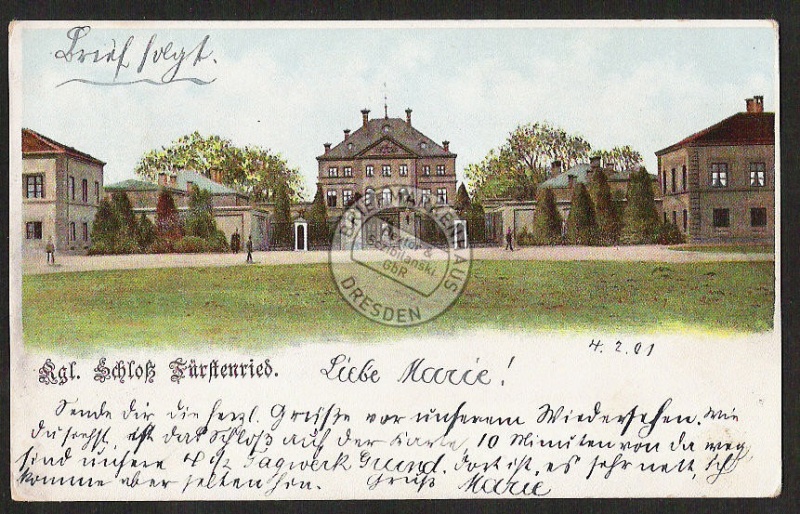 Brief folgt.
BRIEFMARKENHAUS
Sembilanski
GbR
DRESDEN
4.2.01
Kgl. Schloß Fürstenried.
Liebe Marie!
Sende dir die herzl. Grüße vor unserem Wiedersehen. Wie
du siehst, ist das Schloß auf der Karte 10 Minuten von da weg
sind unsere 4 1/2 Tagwerk Grund. Dort ist es sehr nett, ich
komme aber selten hin. Gruß Marie